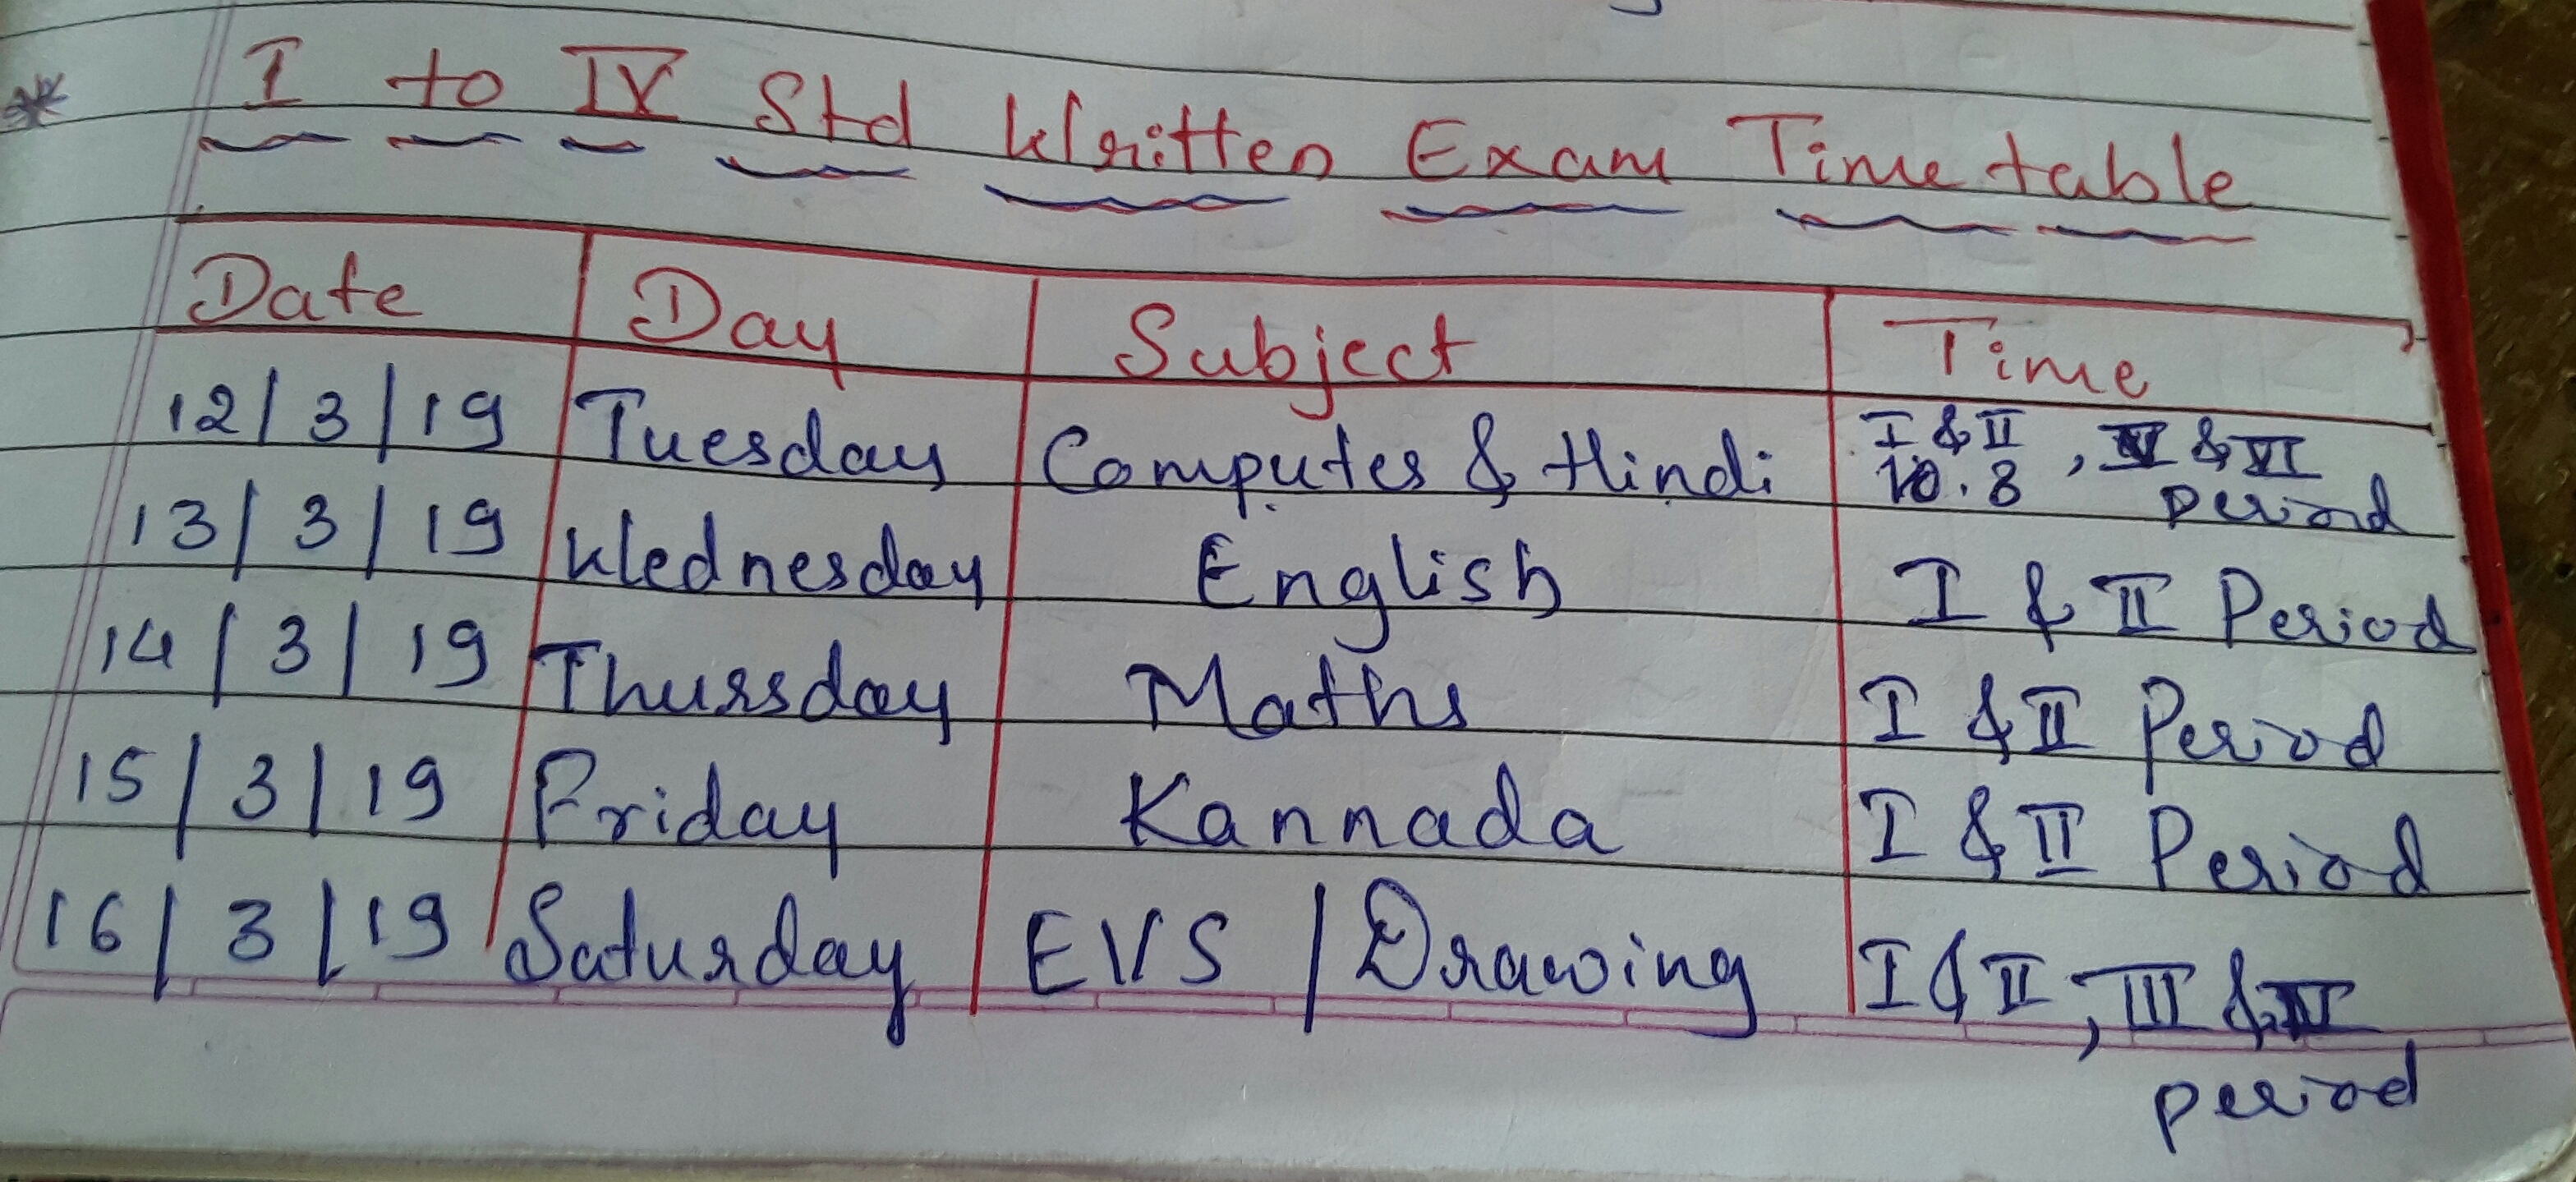 * I to IV Std Written Exam Timetable
Date Day Subject Time
12/3/19 Tuesday Computer & Hindi I & II, V & VI
10.8 period
13/3/19 Wednesday English I & II Period
14/3/19 Thursday Maths I & II Period
15/3/19 Friday Kannada I & II Period
16/3/19 Saturday EVS / Drawing I & II, III & IV
period